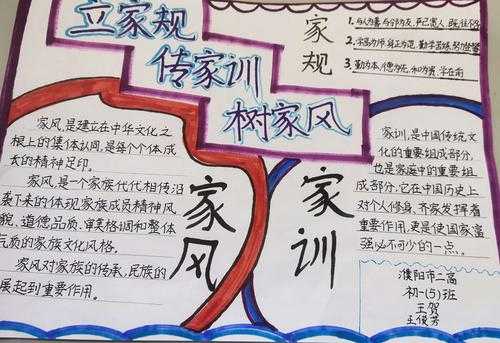 立家规
传家训
树家风
家规
1. 与人为善与邻为友,严己宽人,
2. 学高为师,身正为范,勤学苦练,
3. 勤为本,德为先,和为贵,学在前
家风,是建立在中华文化之
根上的集体认同,是每个个体成
长的精神足印。
家风,是一个家族代代相传沿
袭下来的体现家族成员精神风
貌、道德品质、审美格调和整体
气质的家族文化风格。
家风对家族的传承,民族的
展起到重要作用。
家风
家训
家训,是中国传统文
化的重要组成部分,
也是家庭中的重要组
成部分,它在中国历史上
对个人修身、齐家发挥着
重要作用,更是使国家富
强必不可少的一点。
濮阳市二高
初一(5)班
王贺
王俊芳